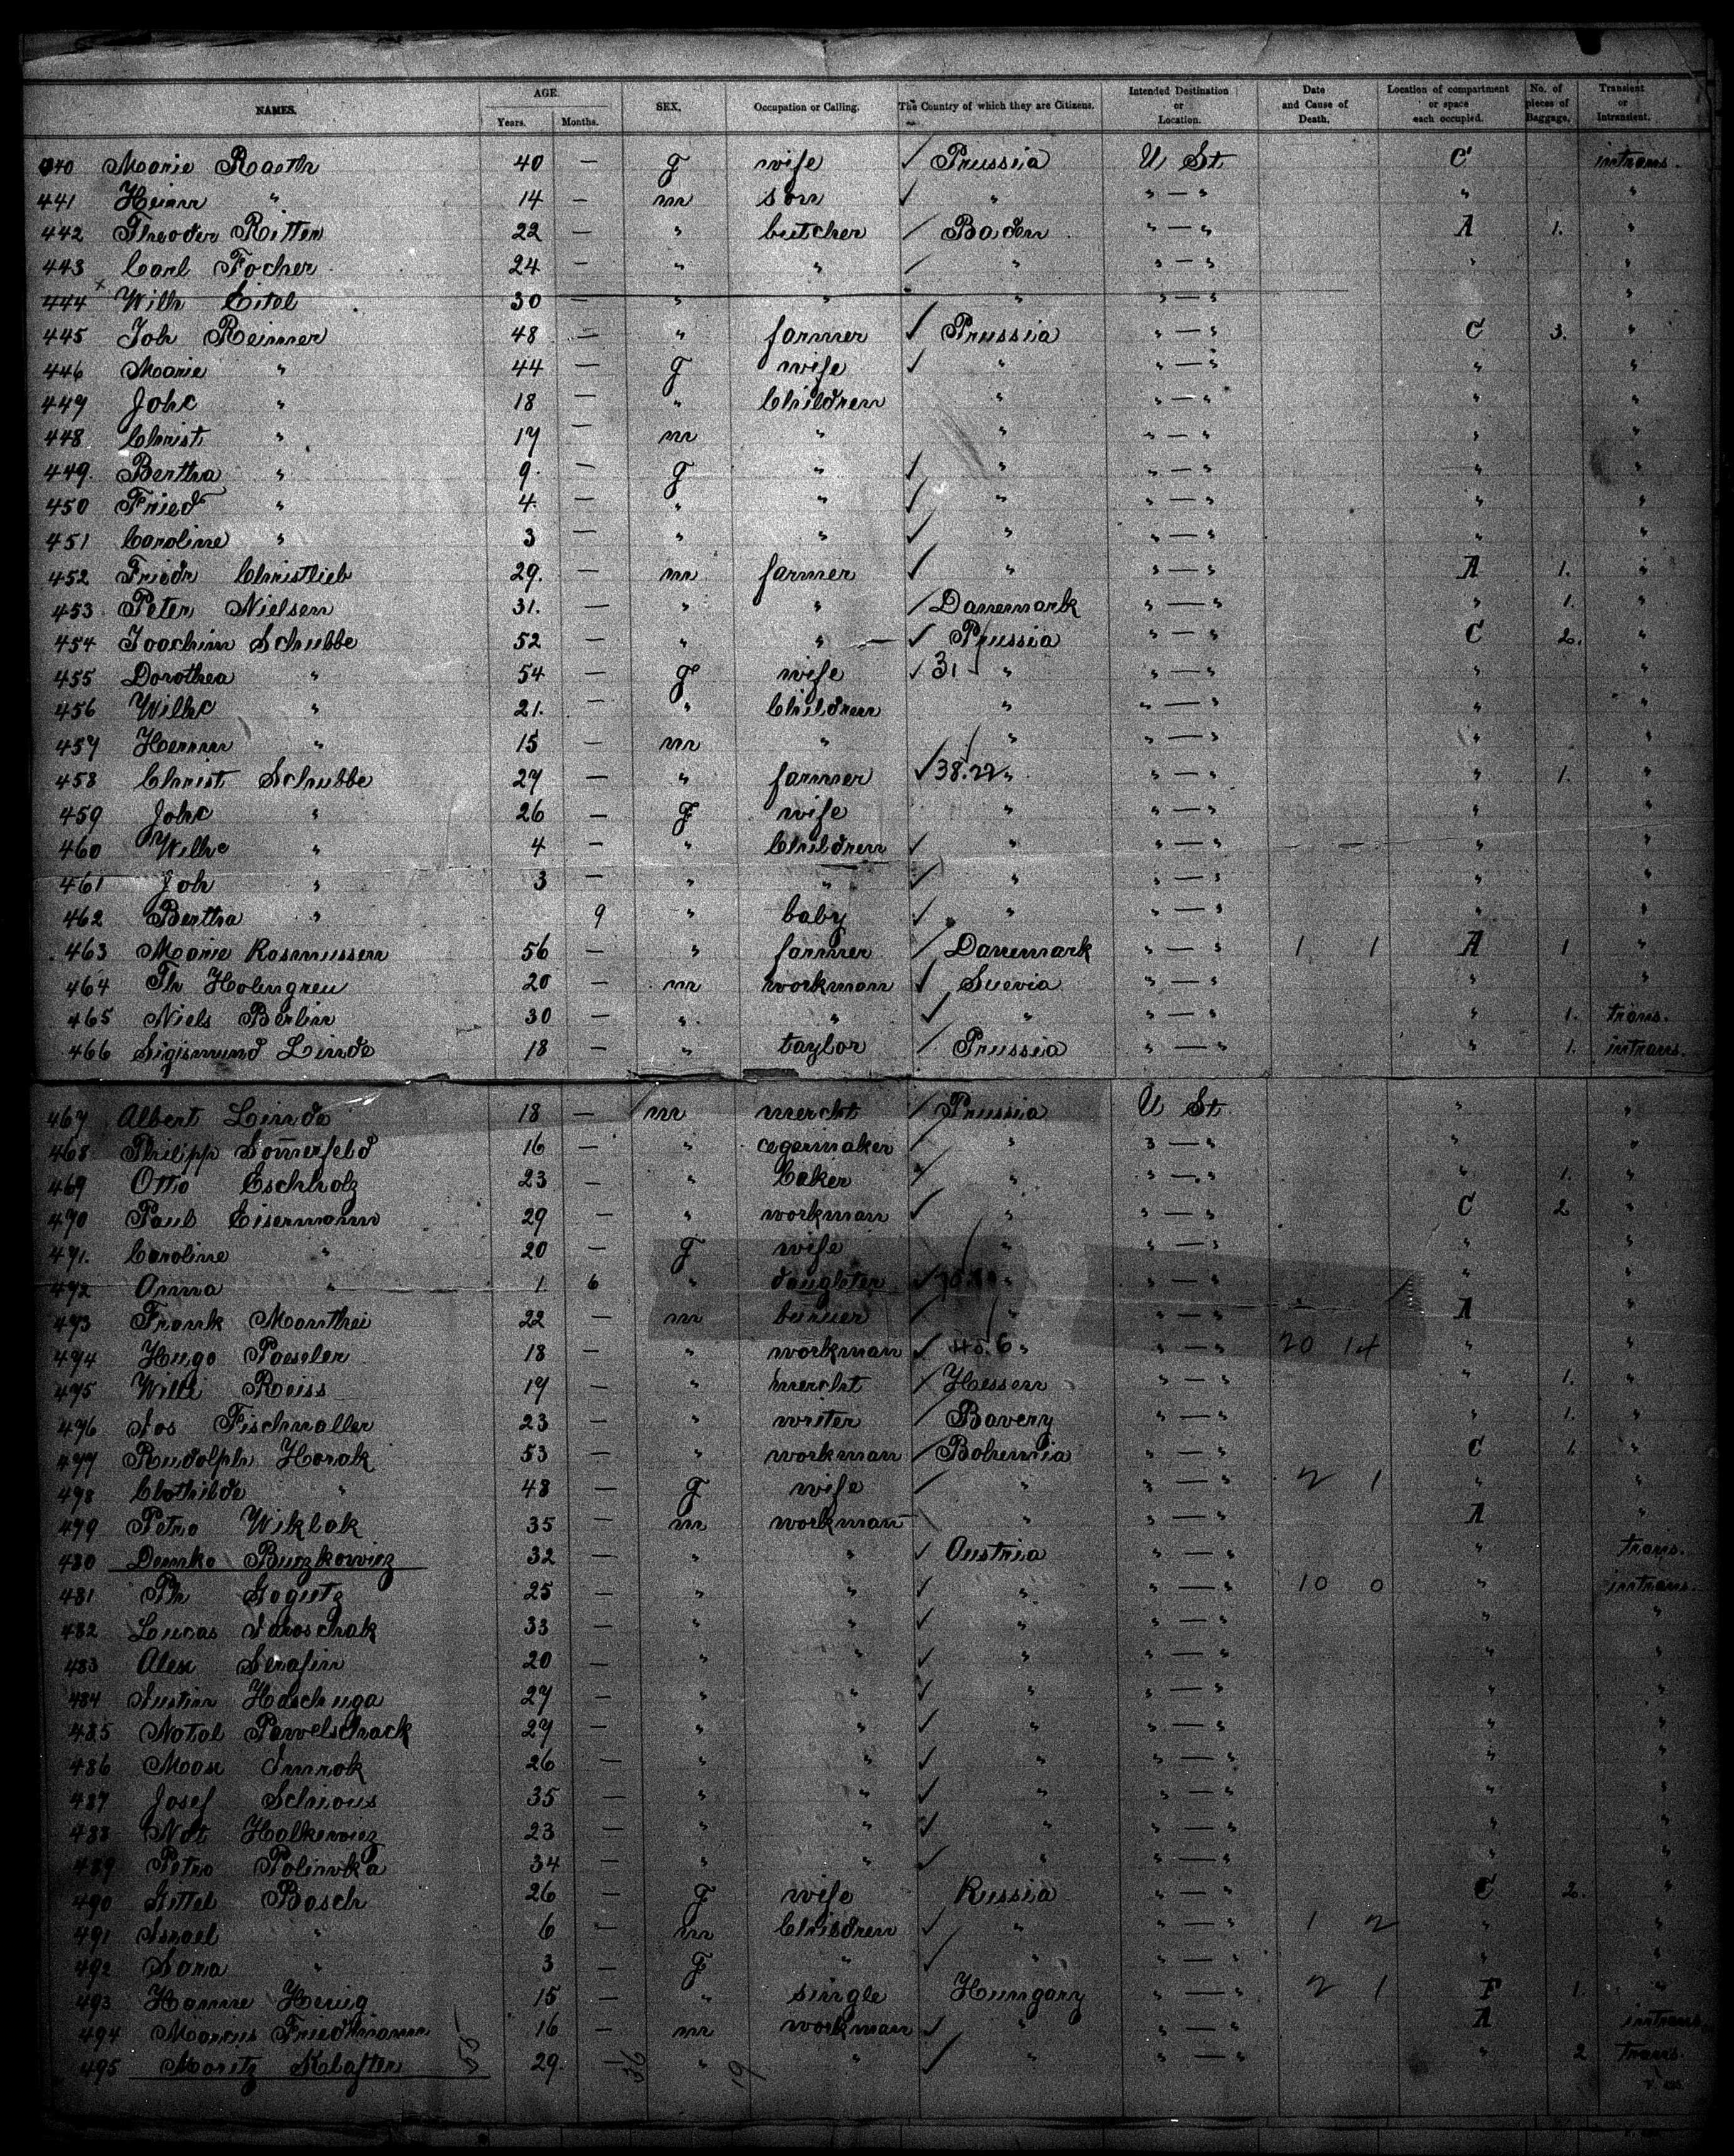 NAMES. AGE. Years. Months. SEX. Occupation or Calling. The Country of which they are Citizens. Intended Destination or Location. Date and Cause of Death. Location of compartment or space each occupied. No. of pieces of Baggage. Transient or Intransient.
440 Marie Raeth 40 — g wife ✓ Prussia U St. C intrans.
441 Heinr " 14 — m son ✓ " " — " " "
442 Theodor Ritter 22 — " butcher / Baden " — " A 1. "
443 Carl Focher 24 — " " / " " — " " "
444 x Wilh Eitel 30 — " " " " — " "
445 Joh Reimer 48 — " farmer ✓ Prussia " — " C 3. "
446 Marie " 44 — g wife ✓ " " — " " "
447 Johe " 18 — " Children " " — " " "
448 Christ " 17 — m " " " — " " "
449. Bertha " 9. — g " ✓ " " — " " "
450 Fried " 4. — " " ✓ " " — " " "
451 Caroline " 3 — " " ✓ " " — " " "
452 Friedr Christlieb 29. — m farmer ✓ " " — " A 1. "
453 Peter Nielsen 31. — " " / Danemark " — " " 1. "
454 Joachim Schubbe 52 — " " ✓ Prussia " — " C 2. "
455 Dorothea " 54 — g wife ✓ 31 " " — " " "
456 Wilhe " 21. — " Children " " — " " "
457 Herman " 15 — m " " " — " " "
458 Christ Schubbe 27 — " farmer ✓ 38.22 " " — " " 1. "
459 Johe " 26 — g wife " " — " " "
460 Wilhe " 4 — " Children ✓ " " — " " "
461 Joh " 3 — " " ✓ " " — " " "
462 Bertha " 9 " baby ✓ " " — " " "
463 Marie Rasmussen 56 — " farmer / Danemark " — " 1 1 A 1 "
464 Th Holmgren 20 — m workman ✓ Suevia " — " " "
465 Niels Berlin 30 — " " ✓ " " — " " 1. trans.
466 Sigismund Linde 18 — " taylor / Prussia " — " " 1. intrans.
467 Albert Linde 18 — m mercht / Prussia U St. " "
468 Philipp Somerfeld 16 — " cegarmaker / " " — " " "
469 Otto Eschholz 23 — " baker / " " — " " 1. "
470 Paul Eisermann 29 — " workman ✓ " " — " C 2 "
471. Caroline " 20 — g wife " " — " " "
472 Anna " 1. 6 " daughter ✓ " " — " " "
473 Frank Manthei 22 — m / " " — " A "
474 Hugo Paeseler 18 — " workman ✓ 45.6 " " — " 20 14 " "
475 Willi Reiss 17 — " mercht / Hessen " — " " 1. "
476 Jos Fischmaller 23 — " writer / Bavery " — " " 1. "
477 Rudolph Horak 53 — " workman / Bohemia " — " C 1. "
478 Clothilde " 48 — g wife / " " — " 2 1 " "
479 Petro Wiklak 35 — m workman " " — " A "
480 Demko Buszkowicz 32 — " " ✓ Oustria " — " " trans.
481 Ph 25 — " " ✓ " " — " 10 0 " intrans.
482 Lucas Jaroschak 33 — " " ✓ " " — " " "
483 Alex Serafin 20 — " " ✓ " " — " " "
484 Justin Haschuga 27 — " " ✓ " " — " " "
485 Natal Pawelschack 27 — " " ✓ " " — " " "
486 Max 26 — " " ✓ " " — " " "
487 Josef 35 — " " ✓ " " — " " "
488 Nat Halkewicz 23 — " " ✓ " " — " " "
489 Petro Polinvka 34 — " " ✓ " " — " " "
490 Gittel Basch 26 — g wife Russia " — " C 2. "
491 Israel " 6 — m Children ✓ " " — " 1 2 " "
492 Sara " 3 — g " ✓ " " — " " "
493 Hanne Herzig 15 — " single Hungary " — " 2 1 F 1. "
494 Marcus Friedmann 16 — m workman ✓ " " — " A intrans.
495 Moritz Klafter 29. — " " ✓ " " — " " 2 trans.
55 36 19